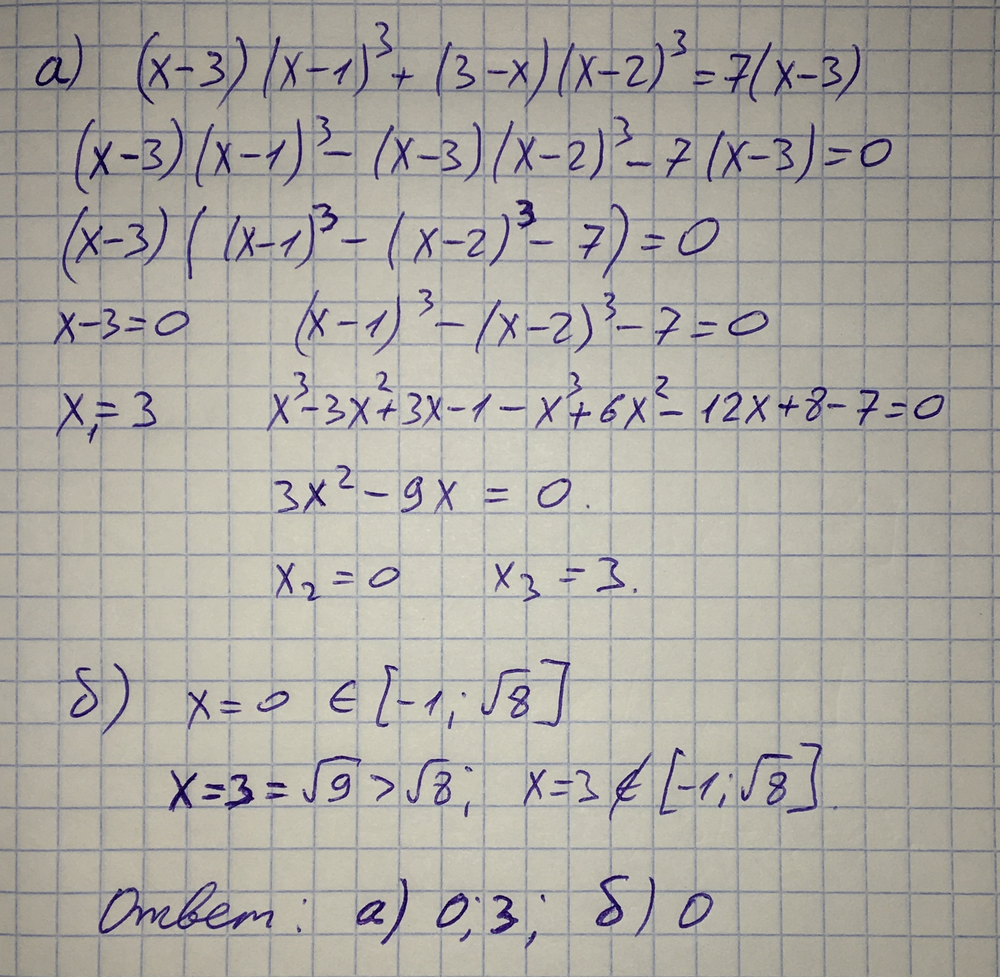 а) (x-3)(x-1)³+(3-x)(x-2)³=7(x-3)
(x-3)(x-1)³-(x-3)(x-2)³-7(x-3)=0
(x-3)((x-1)³-(x-2)³-7)=0
x-3=0 (x-1)³-(x-2)³-7=0
x₁=3 x³-3x²+3x-1-x³+6x²-12x+8-7=0
3x²-9x=0.
x₂=0 x₃=3.
б) x=0 ∈ [-1;√8]
x=3=√9>√8; x=3 ∉ [-1;√8].
Ответ: а) 0;3; б) 0